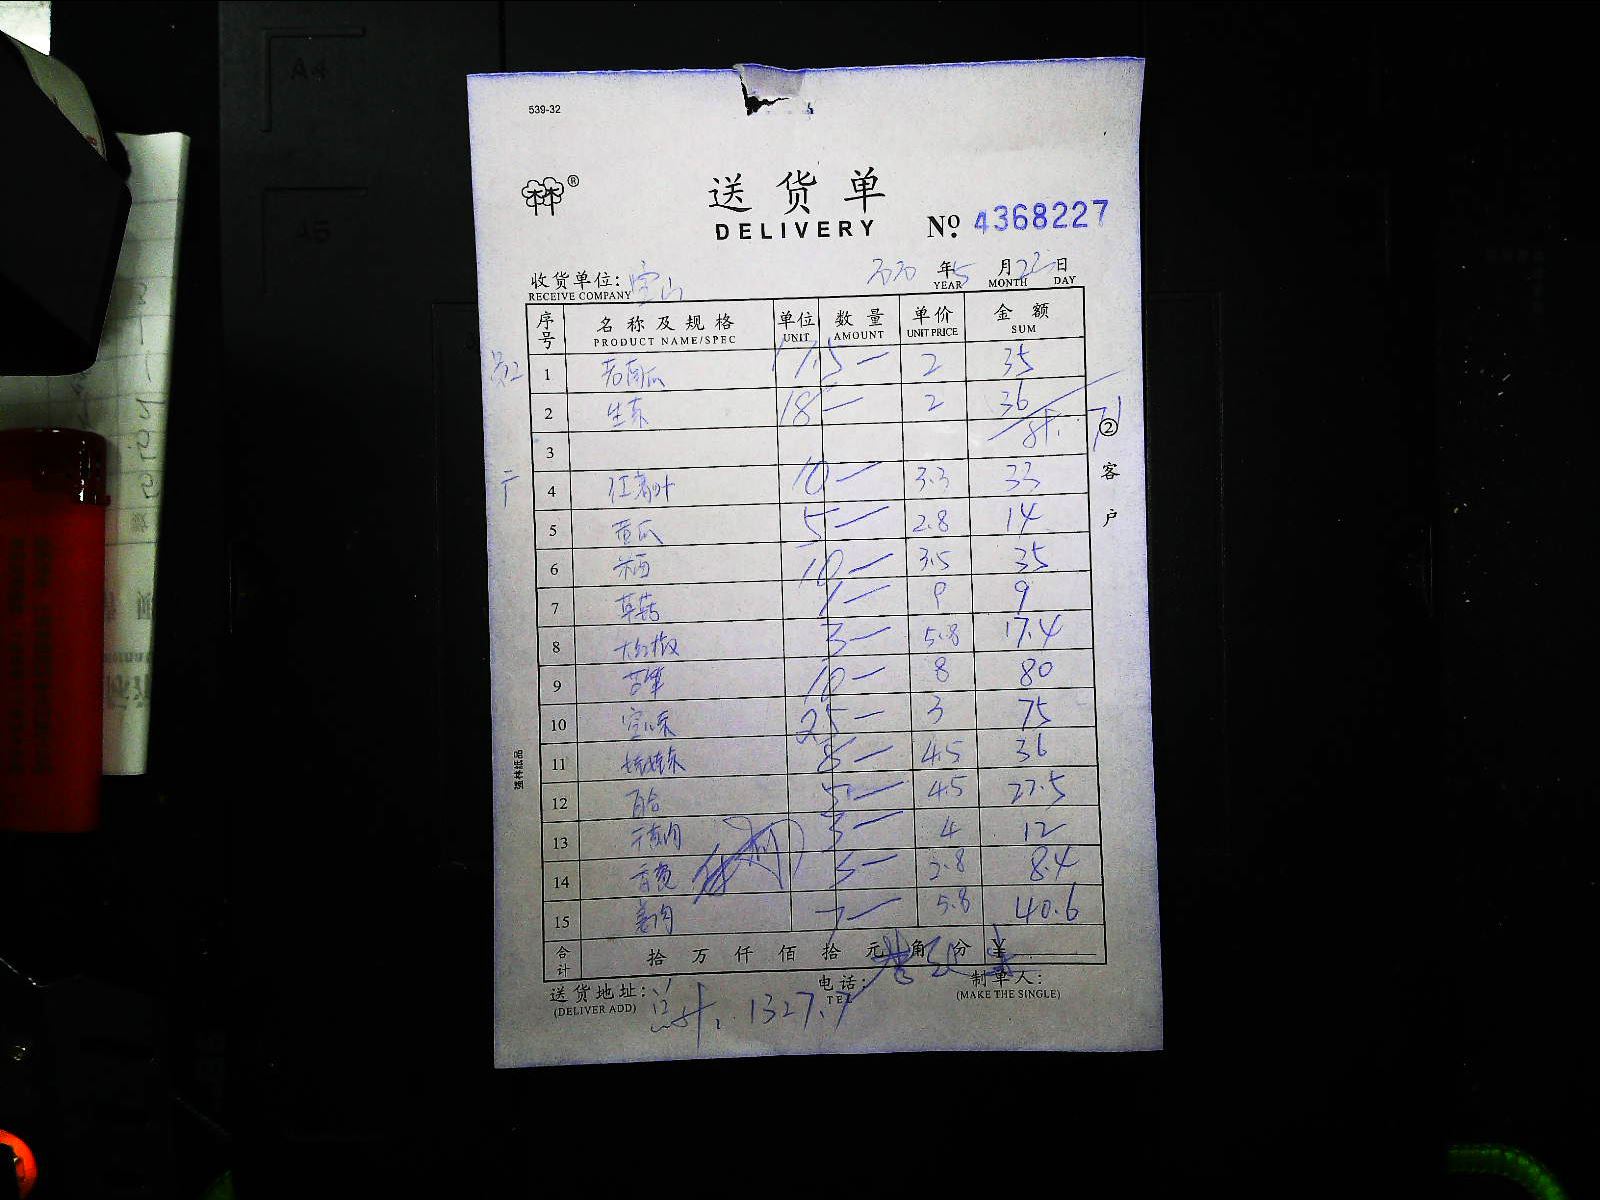 539-32
送货单
DELIVERY
No. 4368227
收货单位: 宝山
RECEIVE COMPANY
2020 年 5 月 22 日
YEAR MONTH DAY
序号 名称及规格 单位 数量 单价 金额
PRODUCT NAME/SPEC UNIT AMOUNT UNIT PRICE SUM
1 老南瓜 17.5 — 2 35
2 生菜 18 — 2 36
3 计. 71
4 10 — 3.3 33
5 黄瓜 5 — 2.8 14
6 10 — 3.5 35
7 草菇 1 — 9 9
8 大红椒 3 — 5.8 17.4
9 10 — 8 80
10 25 — 3 75
11 娃娃菜 8 — 4.5 36
12 百合 5 — 4.5 27.5
13 3 — 4 12
14 3 — 2.8 8.4
15 姜肉 7 — 5.8 40.6
合计 拾 万 仟 佰 拾 元 角 分 ¥
②客户
强林纸品
送货地址:
(DELIVER ADD)
电话:
TEL
制单人:
(MAKE THE SINGLE)
总计: 1327.7
A4
A5